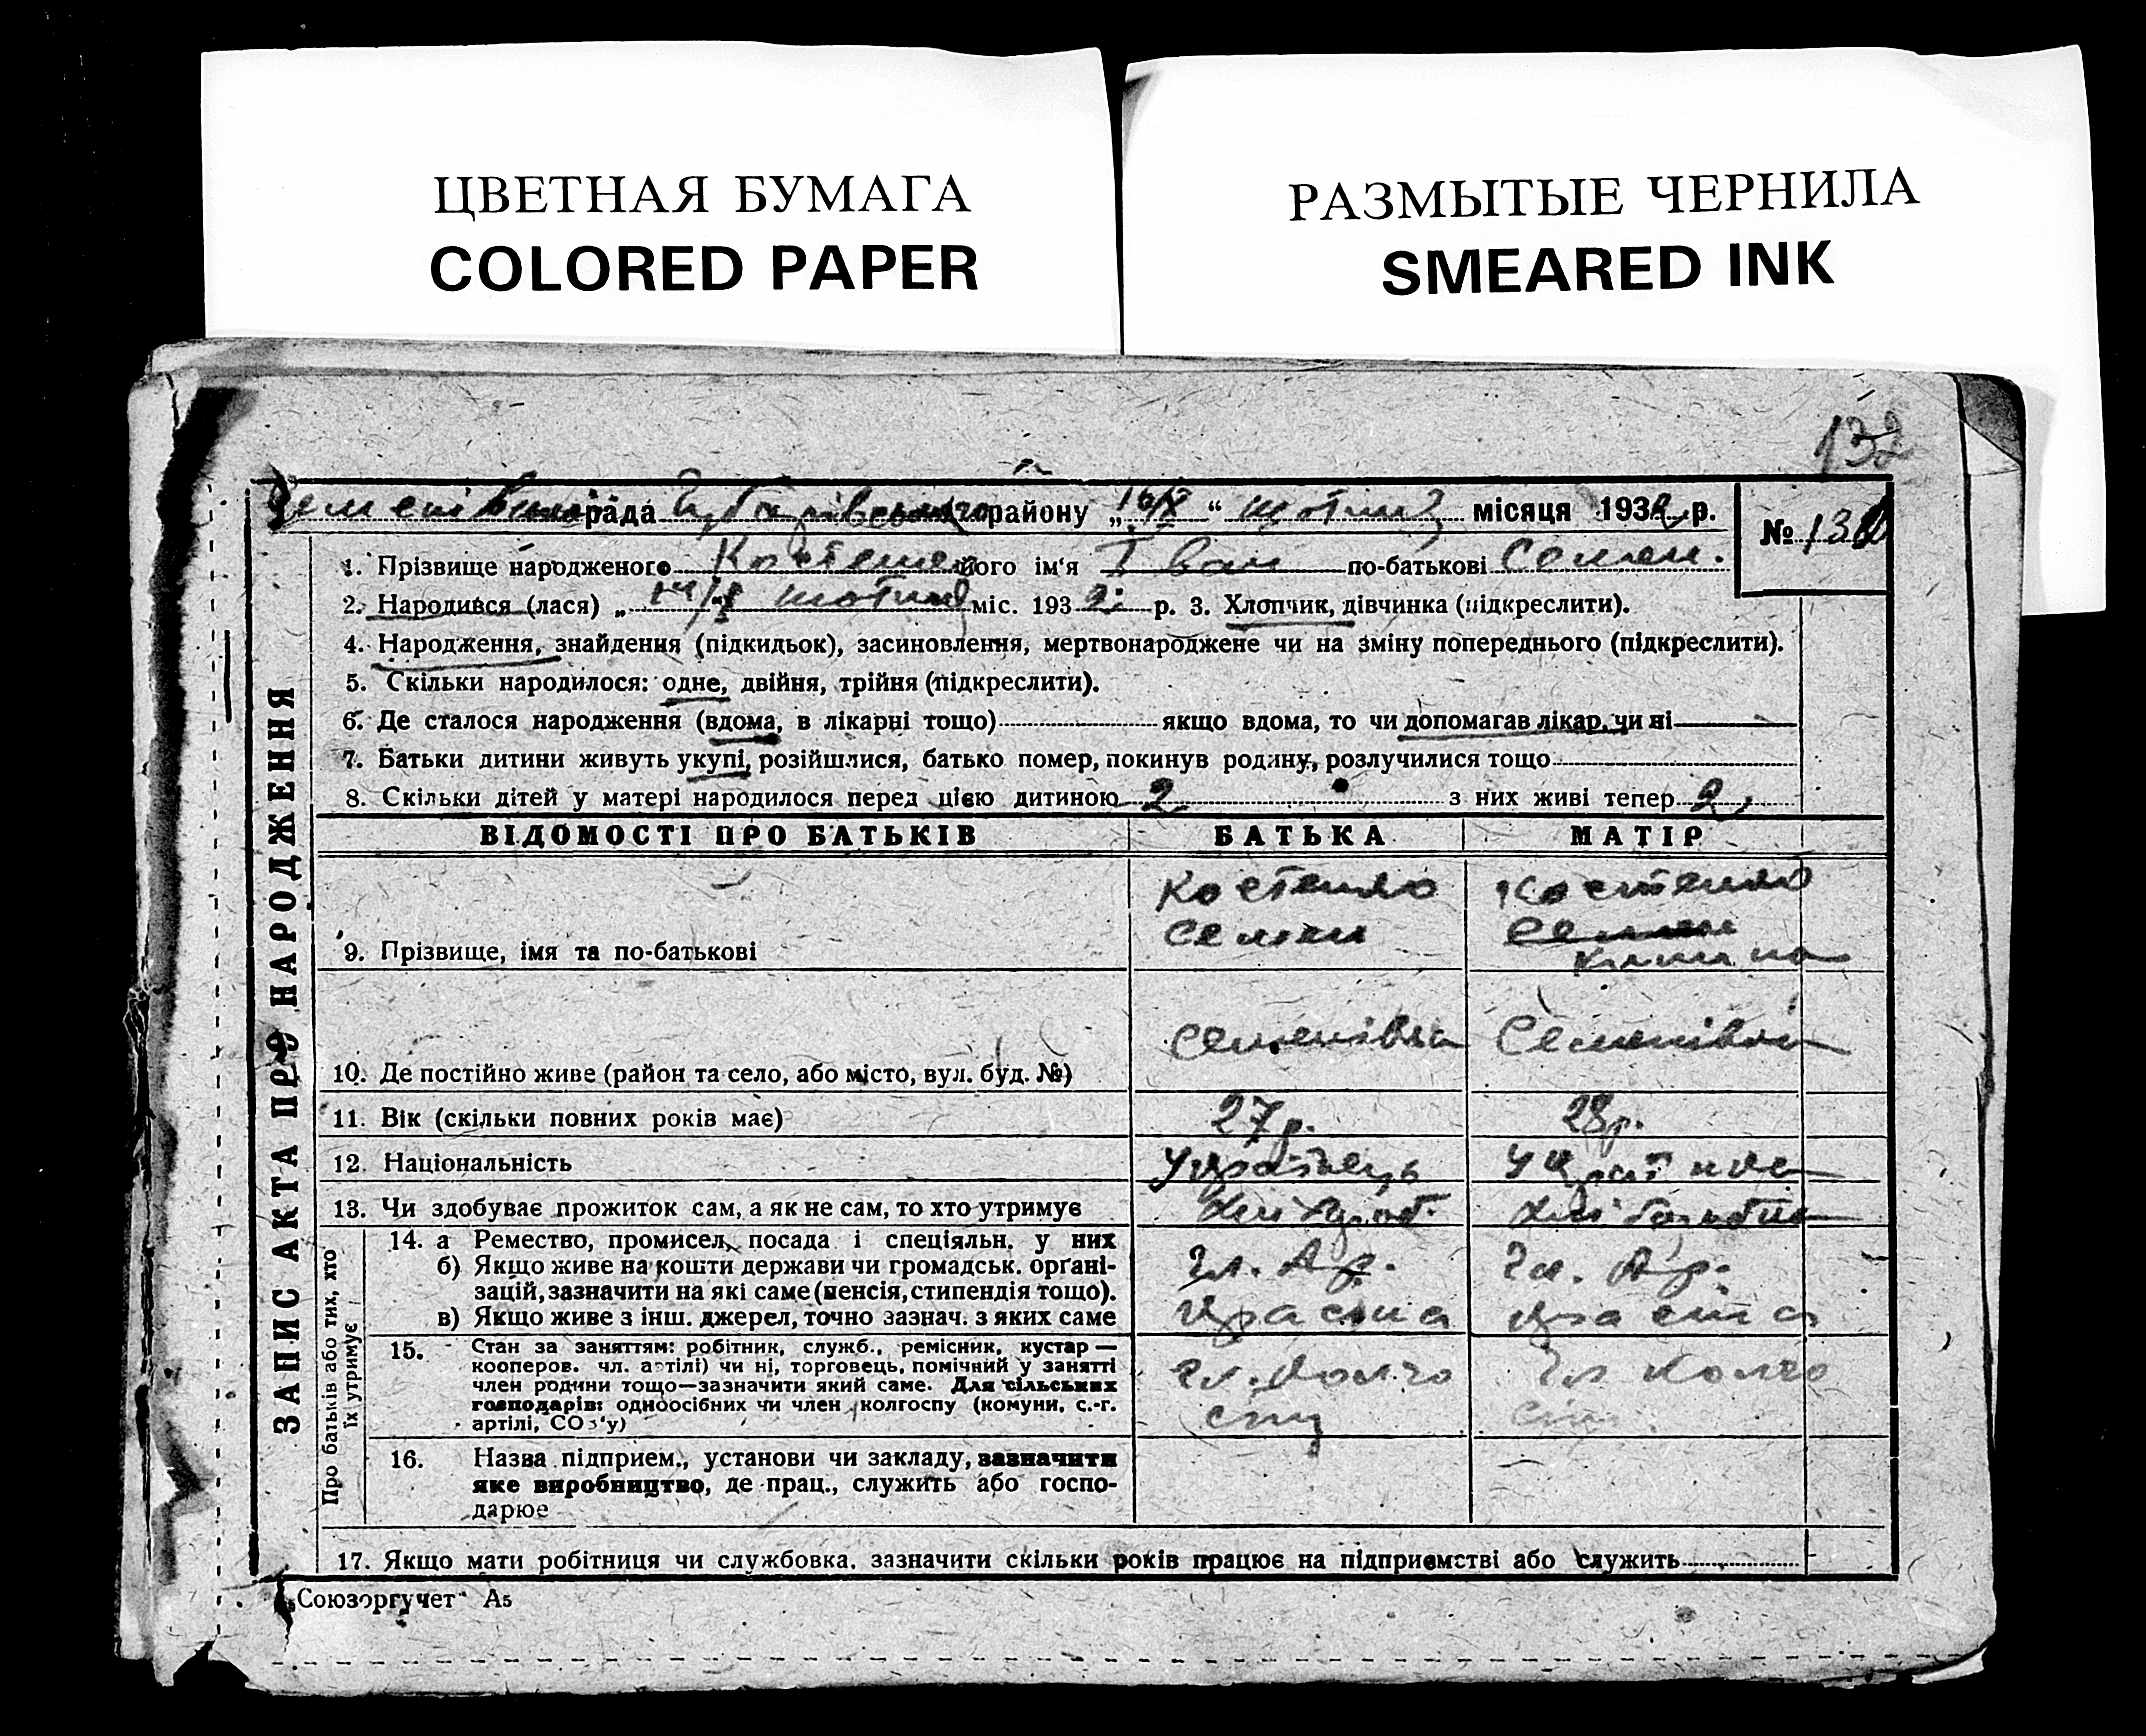 ЦВЕТНАЯ БУМАГА
COLORED PAPER
РАЗМЫТЫЕ ЧЕРНИЛА
SMEARED INK
132
рада района „16/X“ жотня місяця 1932 р.
№ 13
1. Прізвище народженого Костенко його ім'я Іван по-батькові Семен.
2. Народився (лася) „ міс. 1932 р. 3. Хлопчик, дівчинка (підкреслити).
4. Народження, знайдення (підкидьок), засиновлення, мертвонароджене чи на зміну попереднього (підкреслити).
5. Скільки народилося: одне, двійня, трійня (підкреслити).
6. Де сталося народження (вдома, в лікарні тощо) якщо вдома, то чи допомагав лікар. чи ні
7. Батьки дитини живуть укупі, розійшлися, батько помер, покинув родину, розлучилися тощо
8. Скільки дітей у матері народилося перед цією дитиною 2 з них живі тепер 2
ЗАПИС АКТА ПРО НАРОДЖЕННЯ
ВІДОМОСТІ ПРО БАТЬКІВ БАТЬКА МАТІР
9. Прізвище, імя та по-батькові
Костенко Семен
Костенко Семен
10. Де постійно живе (район та село, або місто, вул. буд. №)
Семенівка Семенівка
11. Вік (скільки повних років має) 27р. 28р.
12. Національність Українець Українка
13. Чи здобуває прожиток сам, а як не сам, то хто утримує
Про батьків або тих, хто їх утримує
14. а Ремество, промисел, посада і спеціяльн. у них
б) Якщо живе на кошти держави чи громадськ. органі-
зацій, зазначити на які саме (пенсія, стипендія тощо).
в) Якщо живе з інш. джерел, точно зазнач. з яких саме
15. Стан за заняттям: робітник, служб., ремісник, кустар —
кооперов. чл. артілі) чи ні, торговець, помічний у занятті
член родини тощо—зазначити який саме. Для сільських
господарів: одноосібних чи член колгоспу (комуни, с.-г.
артілі, СОЗ'у)
16. Назва підприєм., установи чи закладу, зазначити
яке виробництво, де прац., служить або госпо-
дарює
17. Якщо мати робітниця чи службовка. зазначити скільки років працює на підприємстві або служить
„Союзоргучет“ А5